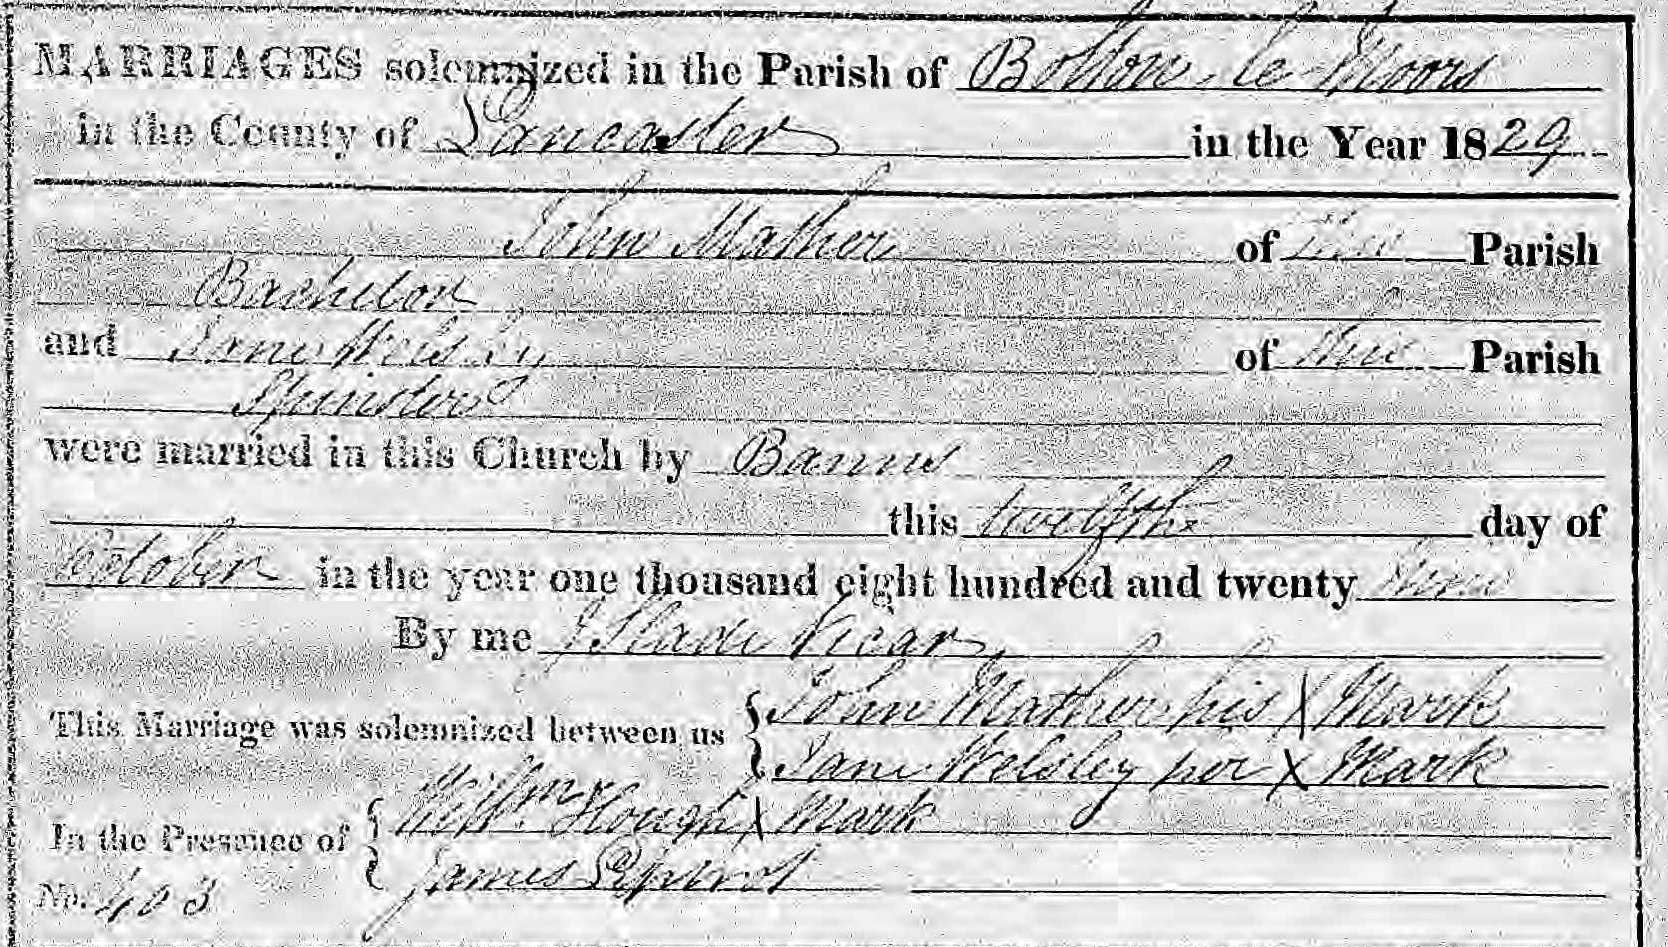 MARRIAGES solemnized in the Parish of Bolton le Moors
in the County of Lancaster in the Year 1829
John Mather of this Parish
Bachelor
and Jane Welsby of this Parish
Spinster
were married in this Church by Banns
this twelfth day of
October in the year one thousand eight hundred and twenty nine
By me J Slade Vicar
This Marriage was solemnized between us John Mather his X Mark
Jane Welsley her X Mark
In the Presence of Willm. Hough X Mark
James
No. 403